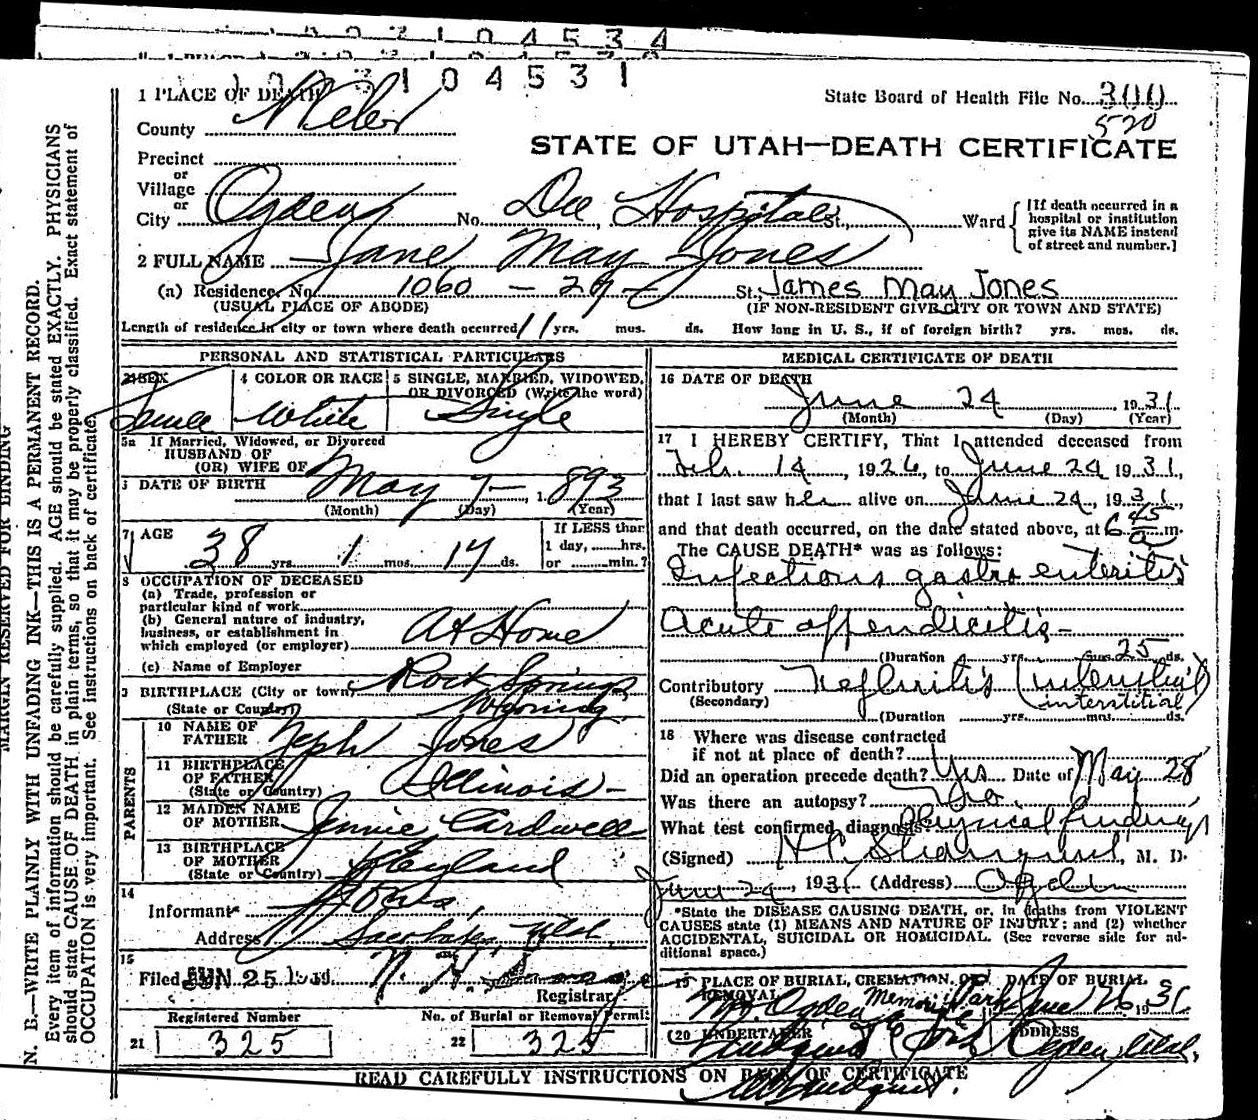 104534
104531
1 PLACE OF DEATH
State Board of Health File No. 300
520
County Weber
STATE OF UTAH—DEATH CERTIFICATE
Precinct
or
Village
or
City Ogden No. Dee Hospital St., Ward
[If death occurred in a hospital or institution give its NAME instead of street and number.]
2 FULL NAME Jane May Jones
(a) Residence, No. 1060 - 29 - St. James May Jones
(USUAL PLACE OF ABODE) (IF NON-RESIDENT GIVE CITY OR TOWN AND STATE)
Length of residence in city or town where death occurred 11 yrs. mos. ds. How long in U. S., if of foreign birth? yrs. mos. ds.
PERSONAL AND STATISTICAL PARTICULARS
3 SEX 4 COLOR OR RACE 5 SINGLE, MARRIED, WIDOWED, OR DIVORCED (Write the word)
White Single
5a If Married, Widowed, or Divorced
HUSBAND OF
(OR) WIFE OF
DATE OF BIRTH May 7 - 1893
(Month) (Day) (Year)
7 AGE 38 yrs. 1 mos. 17 ds.
If LESS than
1 day, hrs.
or min.?
8 OCCUPATION OF DECEASED
(a) Trade, profession or
particular kind of work
(b) General nature of industry,
business, or establishment in
which employed (or employer) At Home
(c) Name of Employer
BIRTHPLACE (City or town) Rock Springs
(State or Country) Wyoming
PARENTS
10 NAME OF
FATHER Neph Jones
11 BIRTHPLACE
OF FATHER
(State or Country) Illinois -
12 MAIDEN NAME
OF MOTHER Jennie Cardwell
13 BIRTHPLACE
OF MOTHER
(State or Country)
14
Informant*
Address
15
Filed JUN 25 N. H.
Registrar
Registered Number No. of Burial or Removal Permit
21 325 22 325
MEDICAL CERTIFICATE OF DEATH
16 DATE OF DEATH
June 24, 1931
(Month) (Day) (Year)
17 I HEREBY CERTIFY, That I attended deceased from
Feb. 14, 1926, to June 24 1931,
that I last saw her alive on June 24, 1931,
and that death occurred, on the date stated above, at 6 45 a m.
The CAUSE DEATH* was as follows:
Infectious gastro enteritis
Acute appendicitis -
(Duration yrs. mos. 25 ds.
Contributory Nefhritis (intenstitil)
(Secondary) interstitial
(Duration yrs. mos. ds.
18 Where was disease contracted
if not at place of death?
Did an operation precede death? Yes Date of May 28
Was there an autopsy? No
What test confirmed diagnosis? Physical findings
(Signed) M. D.
June 24, 1931 (Address) Ogden
*State the DISEASE CAUSING DEATH, or, in deaths from VIOLENT
CAUSES state (1) MEANS AND NATURE OF INJURY; and (2) whether
ACCIDENTAL, SUICIDAL OR HOMICIDAL. (See reverse side for additional space.)
19 PLACE OF BURIAL, CREMATION, OR REMOVAL DATE OF BURIAL
Ogden Memorial Park June 26, 1931
(20 UNDERTAKER ADDRESS
Ogden, Utah,
READ CAREFULLY INSTRUCTIONS ON BACK OF CERTIFICATE
MARGIN RESERVED FOR BINDING
N. B.—WRITE PLAINLY WITH UNFADING INK—THIS IS A PERMANENT RECORD.
Every item of information should be carefully supplied. AGE should be stated EXACTLY. PHYSICIANS
should state CAUSE OF DEATH in plain terms, so that it may be properly classified. Exact statement of
OCCUPATION is very important. See instructions on back of certificate.